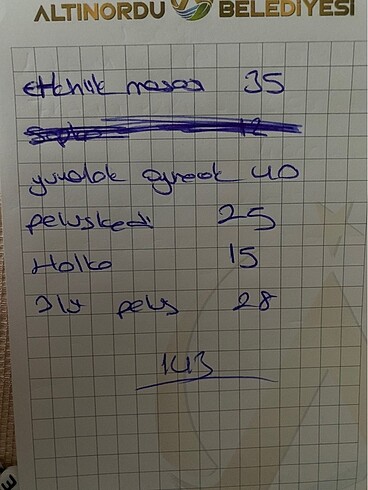 ALTINORDU BELEDİYESİ
etkinlik masası 35
yuvalak oyuncak 40
peluskedi 25
Halka 15
3lü peluş 28
143